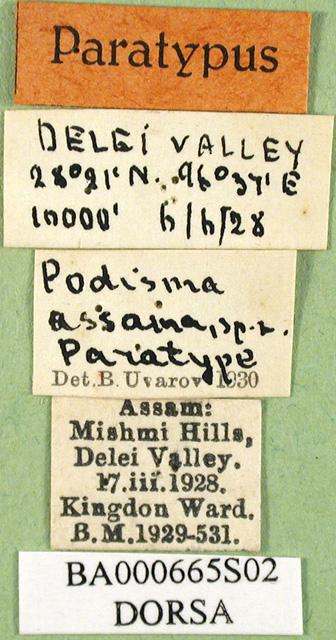 Paratypus
DELEI VALLEY
28°21'N. 96°37'E
10000' 6/6/28
Podisma
assama, sp.n.
Paratype
Det.B.Uvarov 1930
Assam:
Mishmi Hills,
Delei Valley.
17.iii.1928.
Kingdon Ward.
B.M.1929-531.
BA000665S02
DORSA